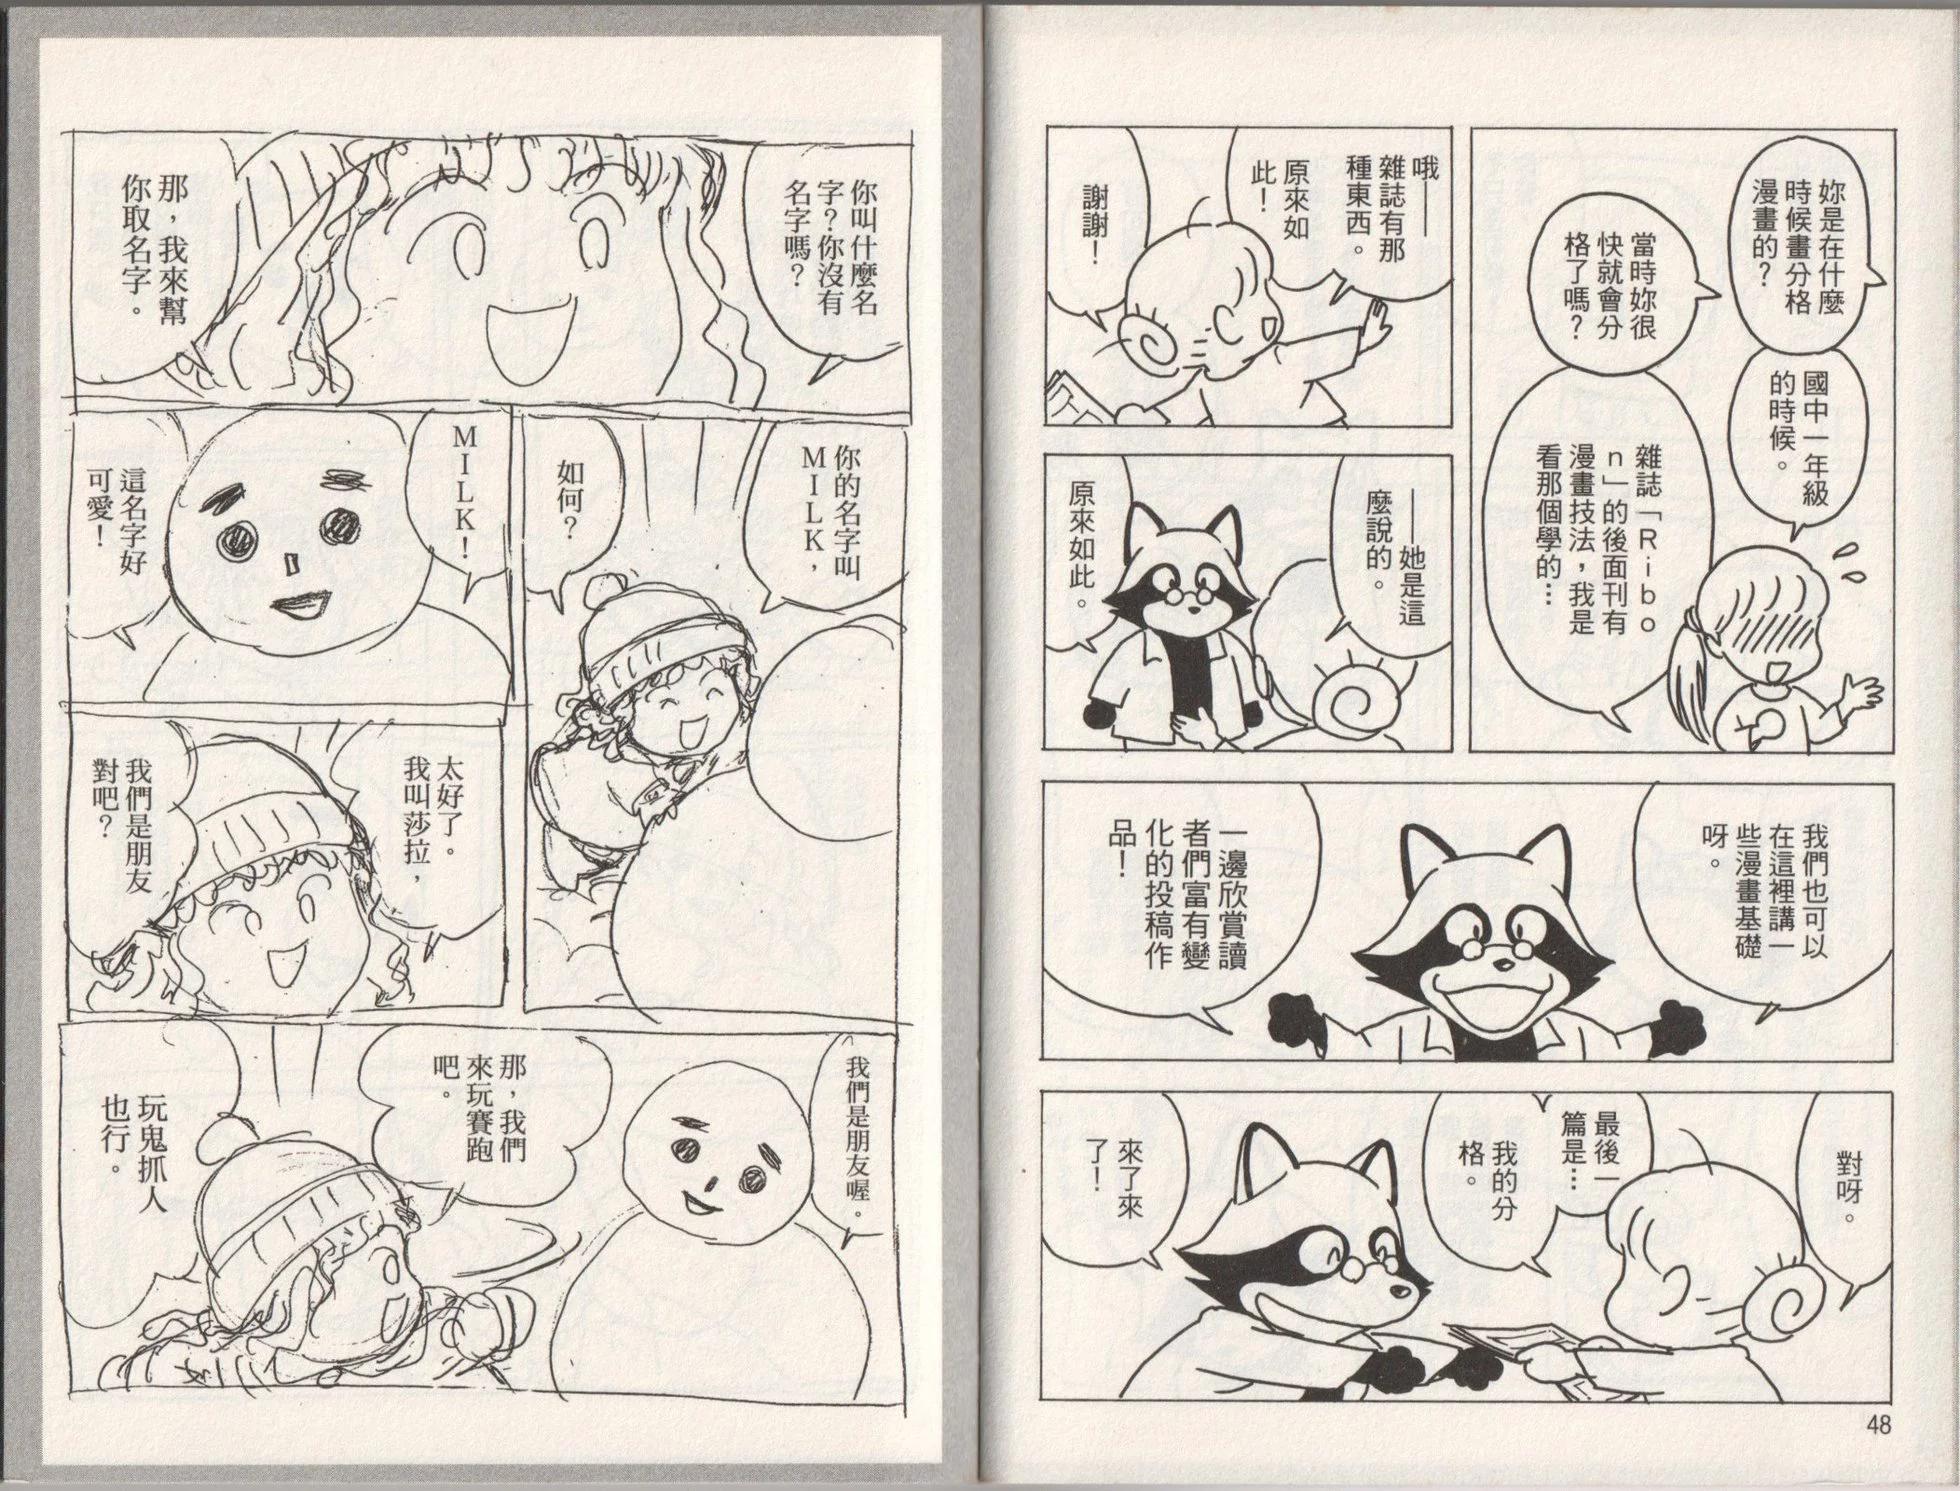 妳是在什麼
時候畫分格
漫畫的？
國中一年級
的時候。
當時妳很
快就會分
格了嗎？
雜誌「Ribo
n」的後面刊有
漫畫技法，我是
看那個學的…
哦——
雜誌有那
種東西。
原來如
此！
謝謝！
——她是這
麼說的。
原來如此。
我們也可以
在這裡講一
些漫畫基礎
呀。
一邊欣賞讀
者們富有變
化的投稿作
品！
對呀。
最後一
篇是…
我的分
格。
來了來
了！
48
你叫什麼名
字？你沒有
名字嗎？
那，我來幫
你取名字。
你的名字叫
MILK，
如何？
MILK！
這名字好
可愛！
太好了。
我叫莎拉，
我們是朋友
對吧？
我們是朋友喔。
那，我們
來玩賽跑
吧。
玩鬼抓人
也行。